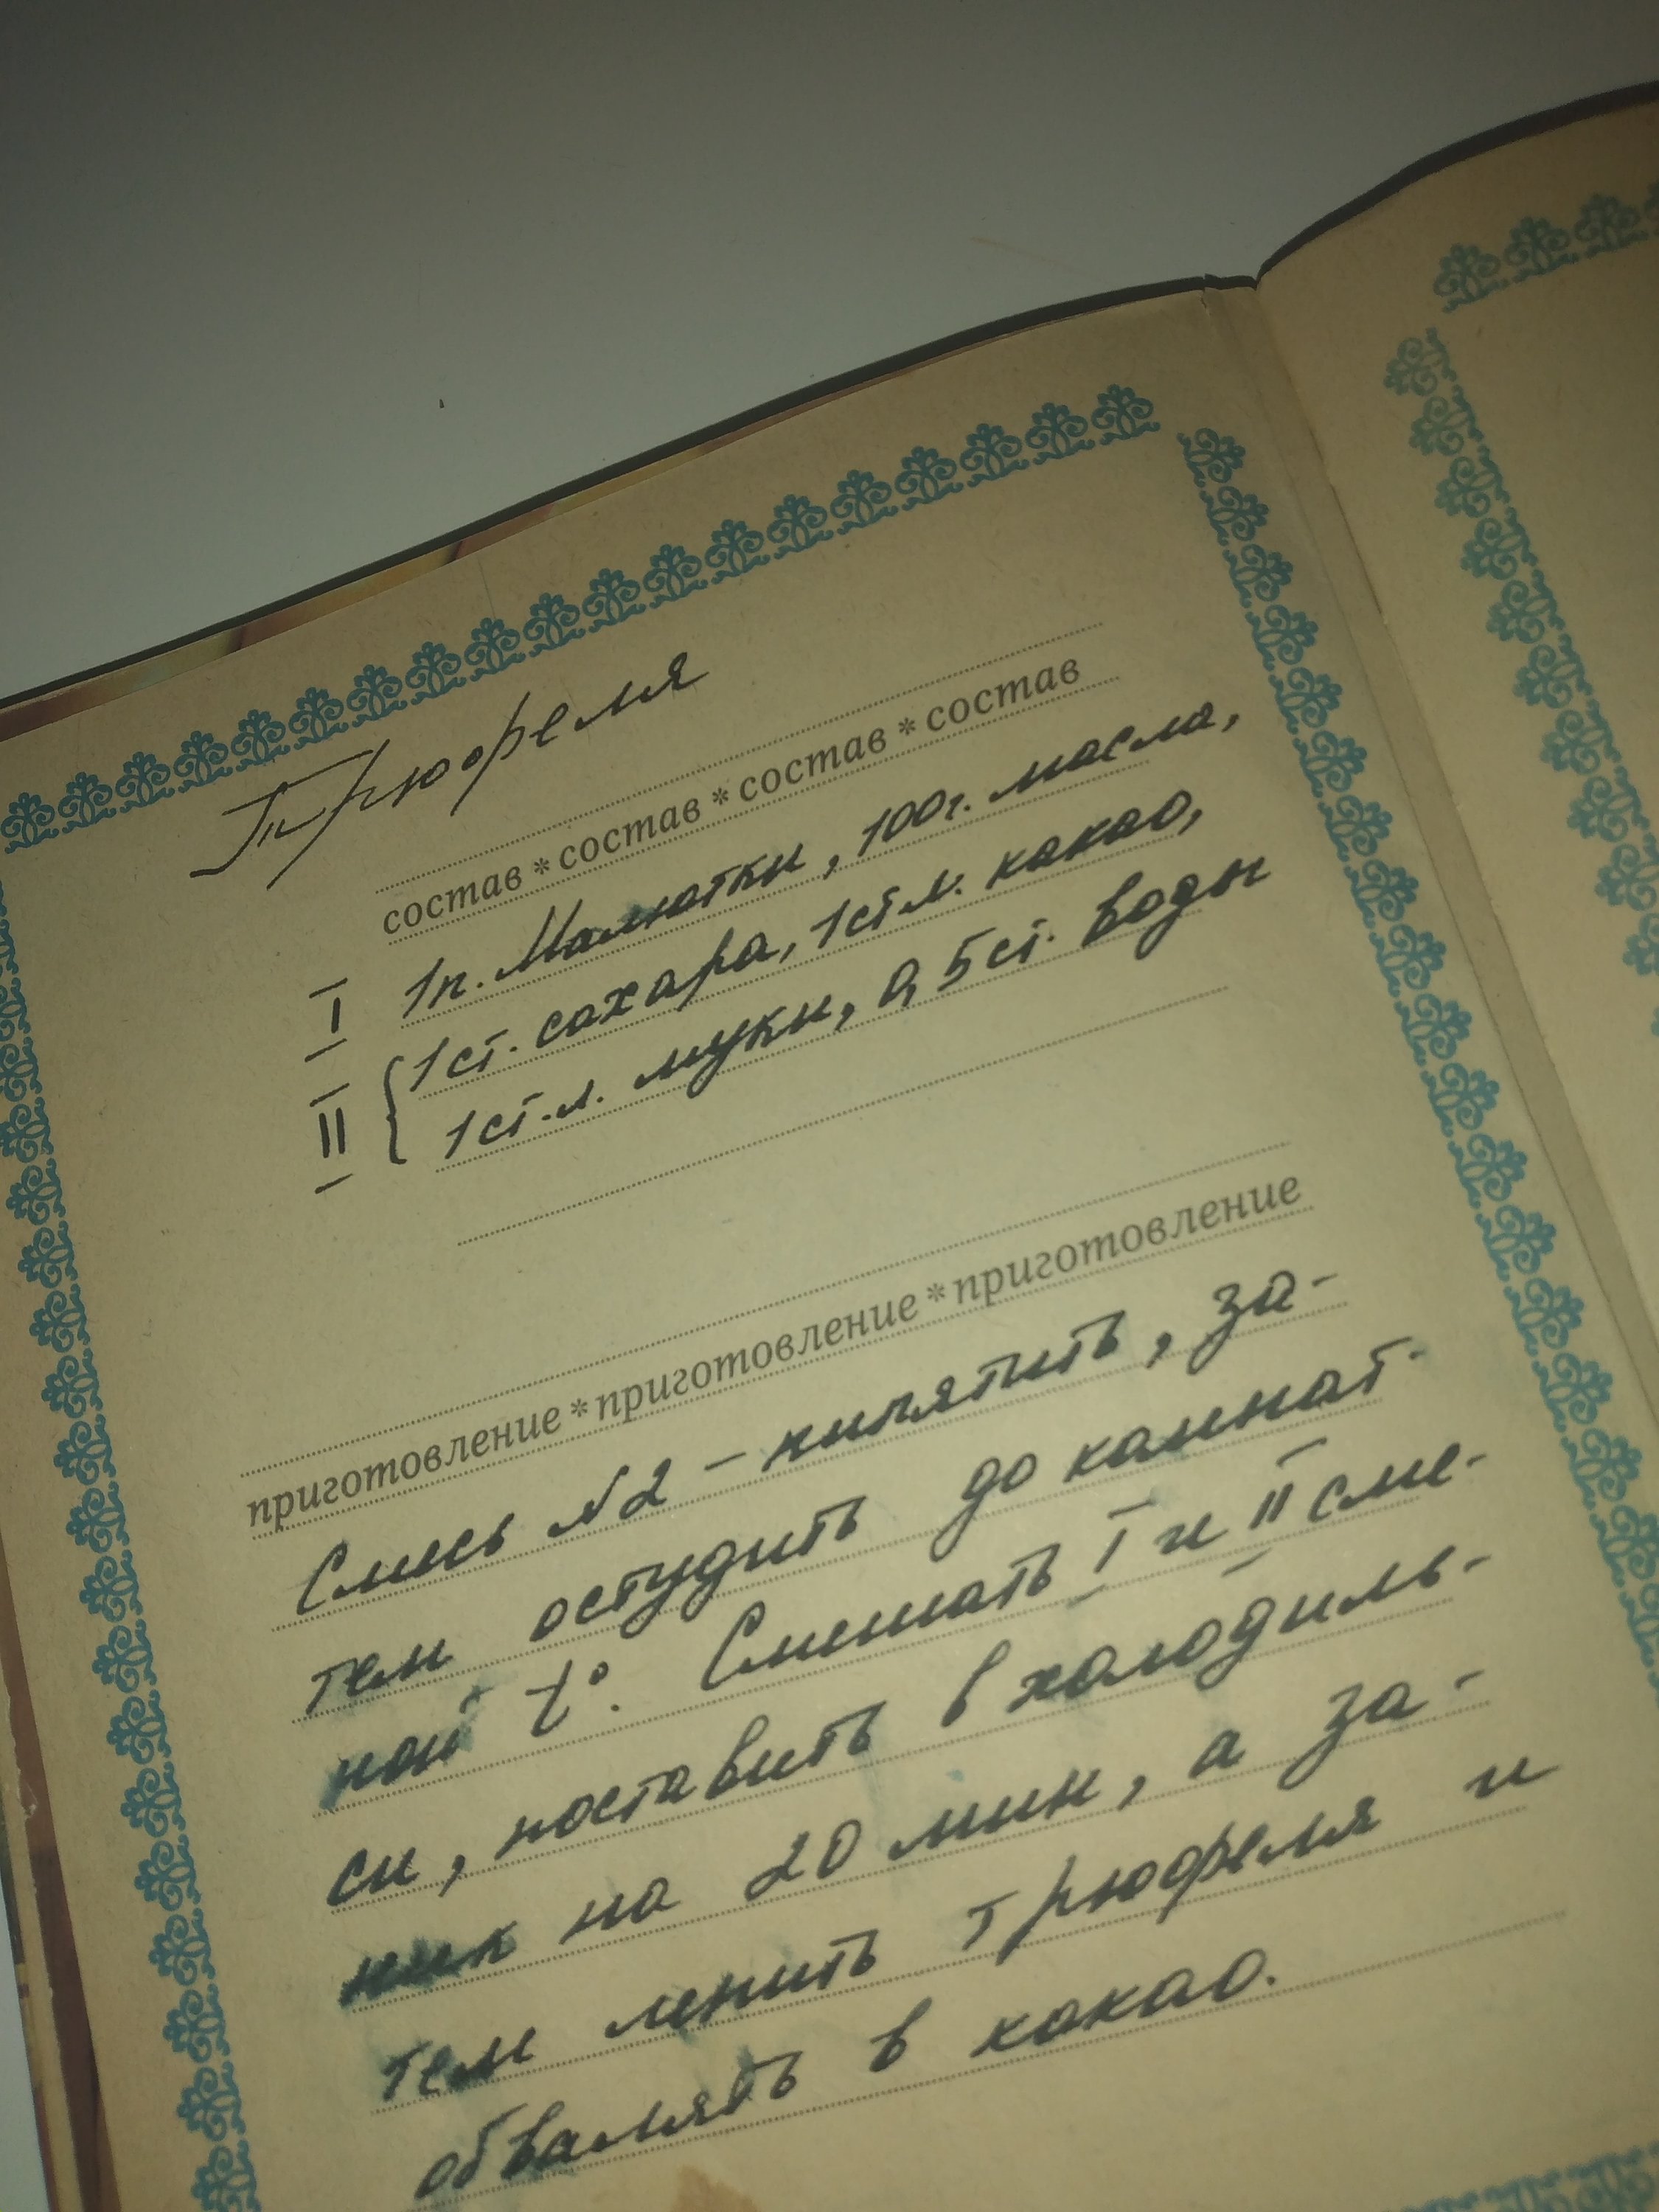 Трюфеля
состав * состав * состав * состав
I 1п. Малютки, 100г. масла,
II { 1ст. сахара, 1ст.л. какао,
1ст.л. муки, 0,5ст. воды
приготовление * приготовление * приготовление
Смесь №2 – кипятить, за-
тем остудить до комнат-
ной t°. Смешать I и II сме-
си, поставить в холодиль-
ник на 20 мин, а за-
тем лепить трюфеля и
обвалять в какао.